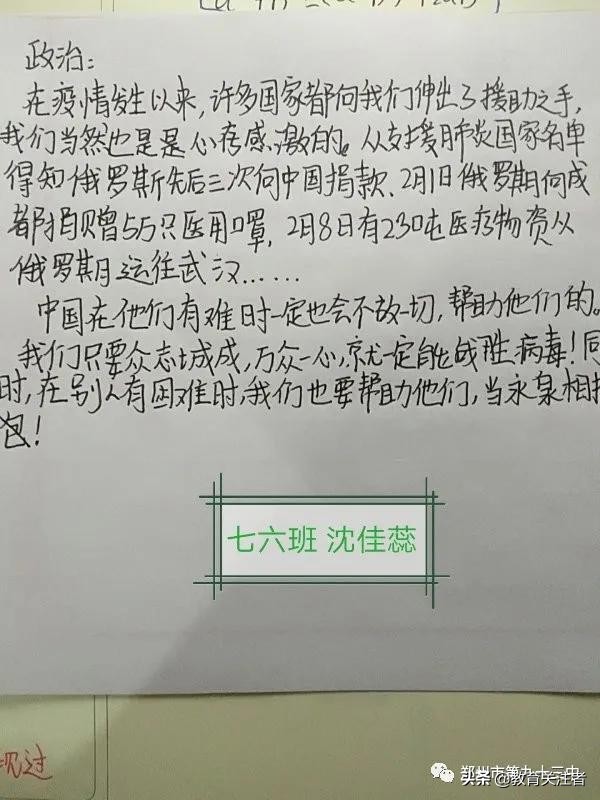 政治:
在疫情发生以来,许多国家都向我们伸出了援助之手,
我们当然也是是心存感激的。从支援肺炎国家名单
得知俄罗斯先后三次向中国捐款.2月1日俄罗斯向成
都捐赠5万只医用口罩,2月8日有230吨医疗物资从
俄罗斯运往武汉......
中国在他们有难时一定也会不放一切,帮助他们的。
我们只要众志成成,万众一心,就一定能战胜病毒!同
时,在别人有困难时,我们也要帮助他们,当永泉相报
包!
七六班 沈佳蕊
况过
郑州市第九十三中
头条@教育关注者